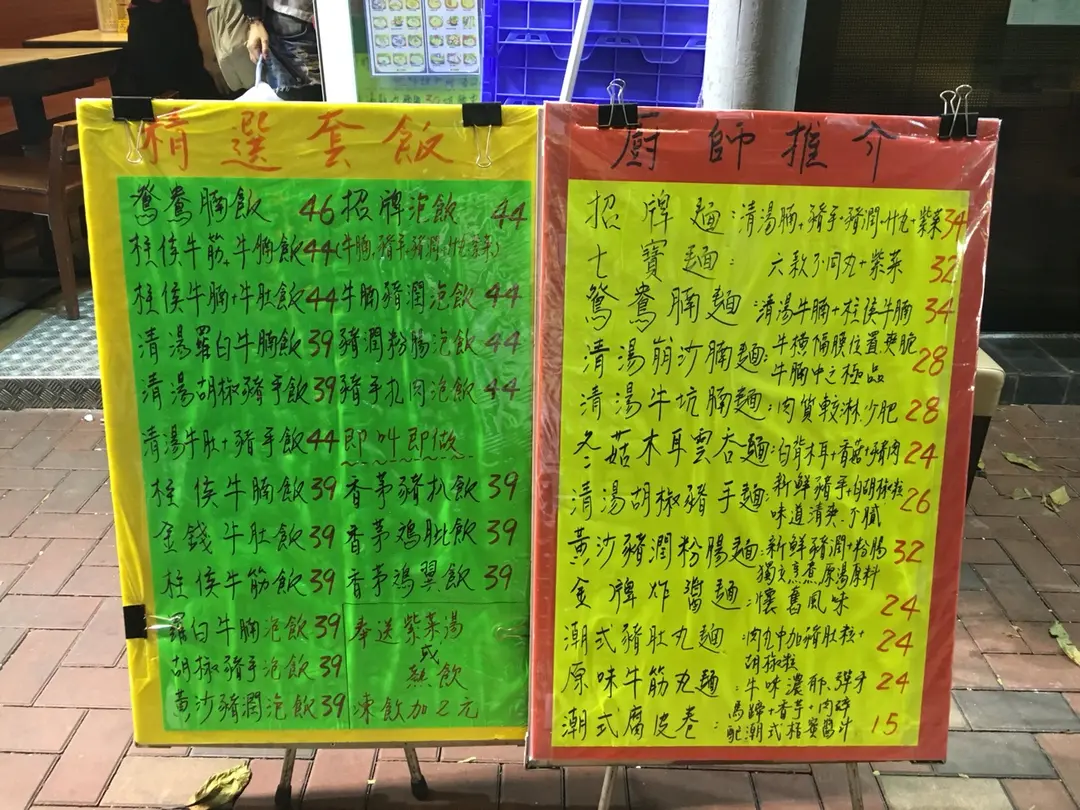 精選套飯
鴛鴦腩飯 46
柱侯牛筋+牛腩飯 44
柱侯牛腩+牛肚飯 44
清湯羅白牛腩飯 39
清湯胡椒豬手飯 39
清湯牛肚+豬手飯 44
柱侯牛腩飯 39
金錢牛肚飯 39
柱侯牛筋飯 39
羅白牛腩泡飯 39
胡椒豬手泡飯 39
黃沙豬潤泡飯 39
招牌泡飯 44
(牛腩,豬手,豬潤,什丸,紫菜)
牛腩豬潤泡飯 44
豬潤粉腸泡飯 44
豬手扎肉泡飯 44
即叫即做
香茅豬扒飯 39
香茅鸡肶飯 39
香茅鸡翼飯 39
奉送紫菜湯
或
熱飲
凍飲加2元
廚師推介
招牌麵:清湯腩+豬手+豬潤+什丸+紫菜 34
七寶麵: 六款不同丸+紫菜 32
鴛鴦腩麵:清湯牛腩+柱侯牛腩 34
清湯崩沙腩麵:牛橫隔膜位置爽脆 28
牛腩中之極品
清湯牛坑腩麵:肉質較淋少肥 28
冬菇木耳雲吞麵:白背木耳+香菇+豬肉 24
清湯胡椒豬手麵:新鮮豬手+白胡椒粒 26
味道清爽.不膩
黃沙豬潤粉腸麵:新鮮豬潤+粉腸 32
獨立烹煮原湯原料
金牌炸醬麵:懷舊風味 24
潮式豬肚丸麵:肉丸中加豬肚粒+ 24
胡椒粒
原味牛筋丸麵:牛味濃郁.彈牙 24
潮式腐皮卷:馬蹄+香芋+肉碎 15
配潮式桔蜜醬汁